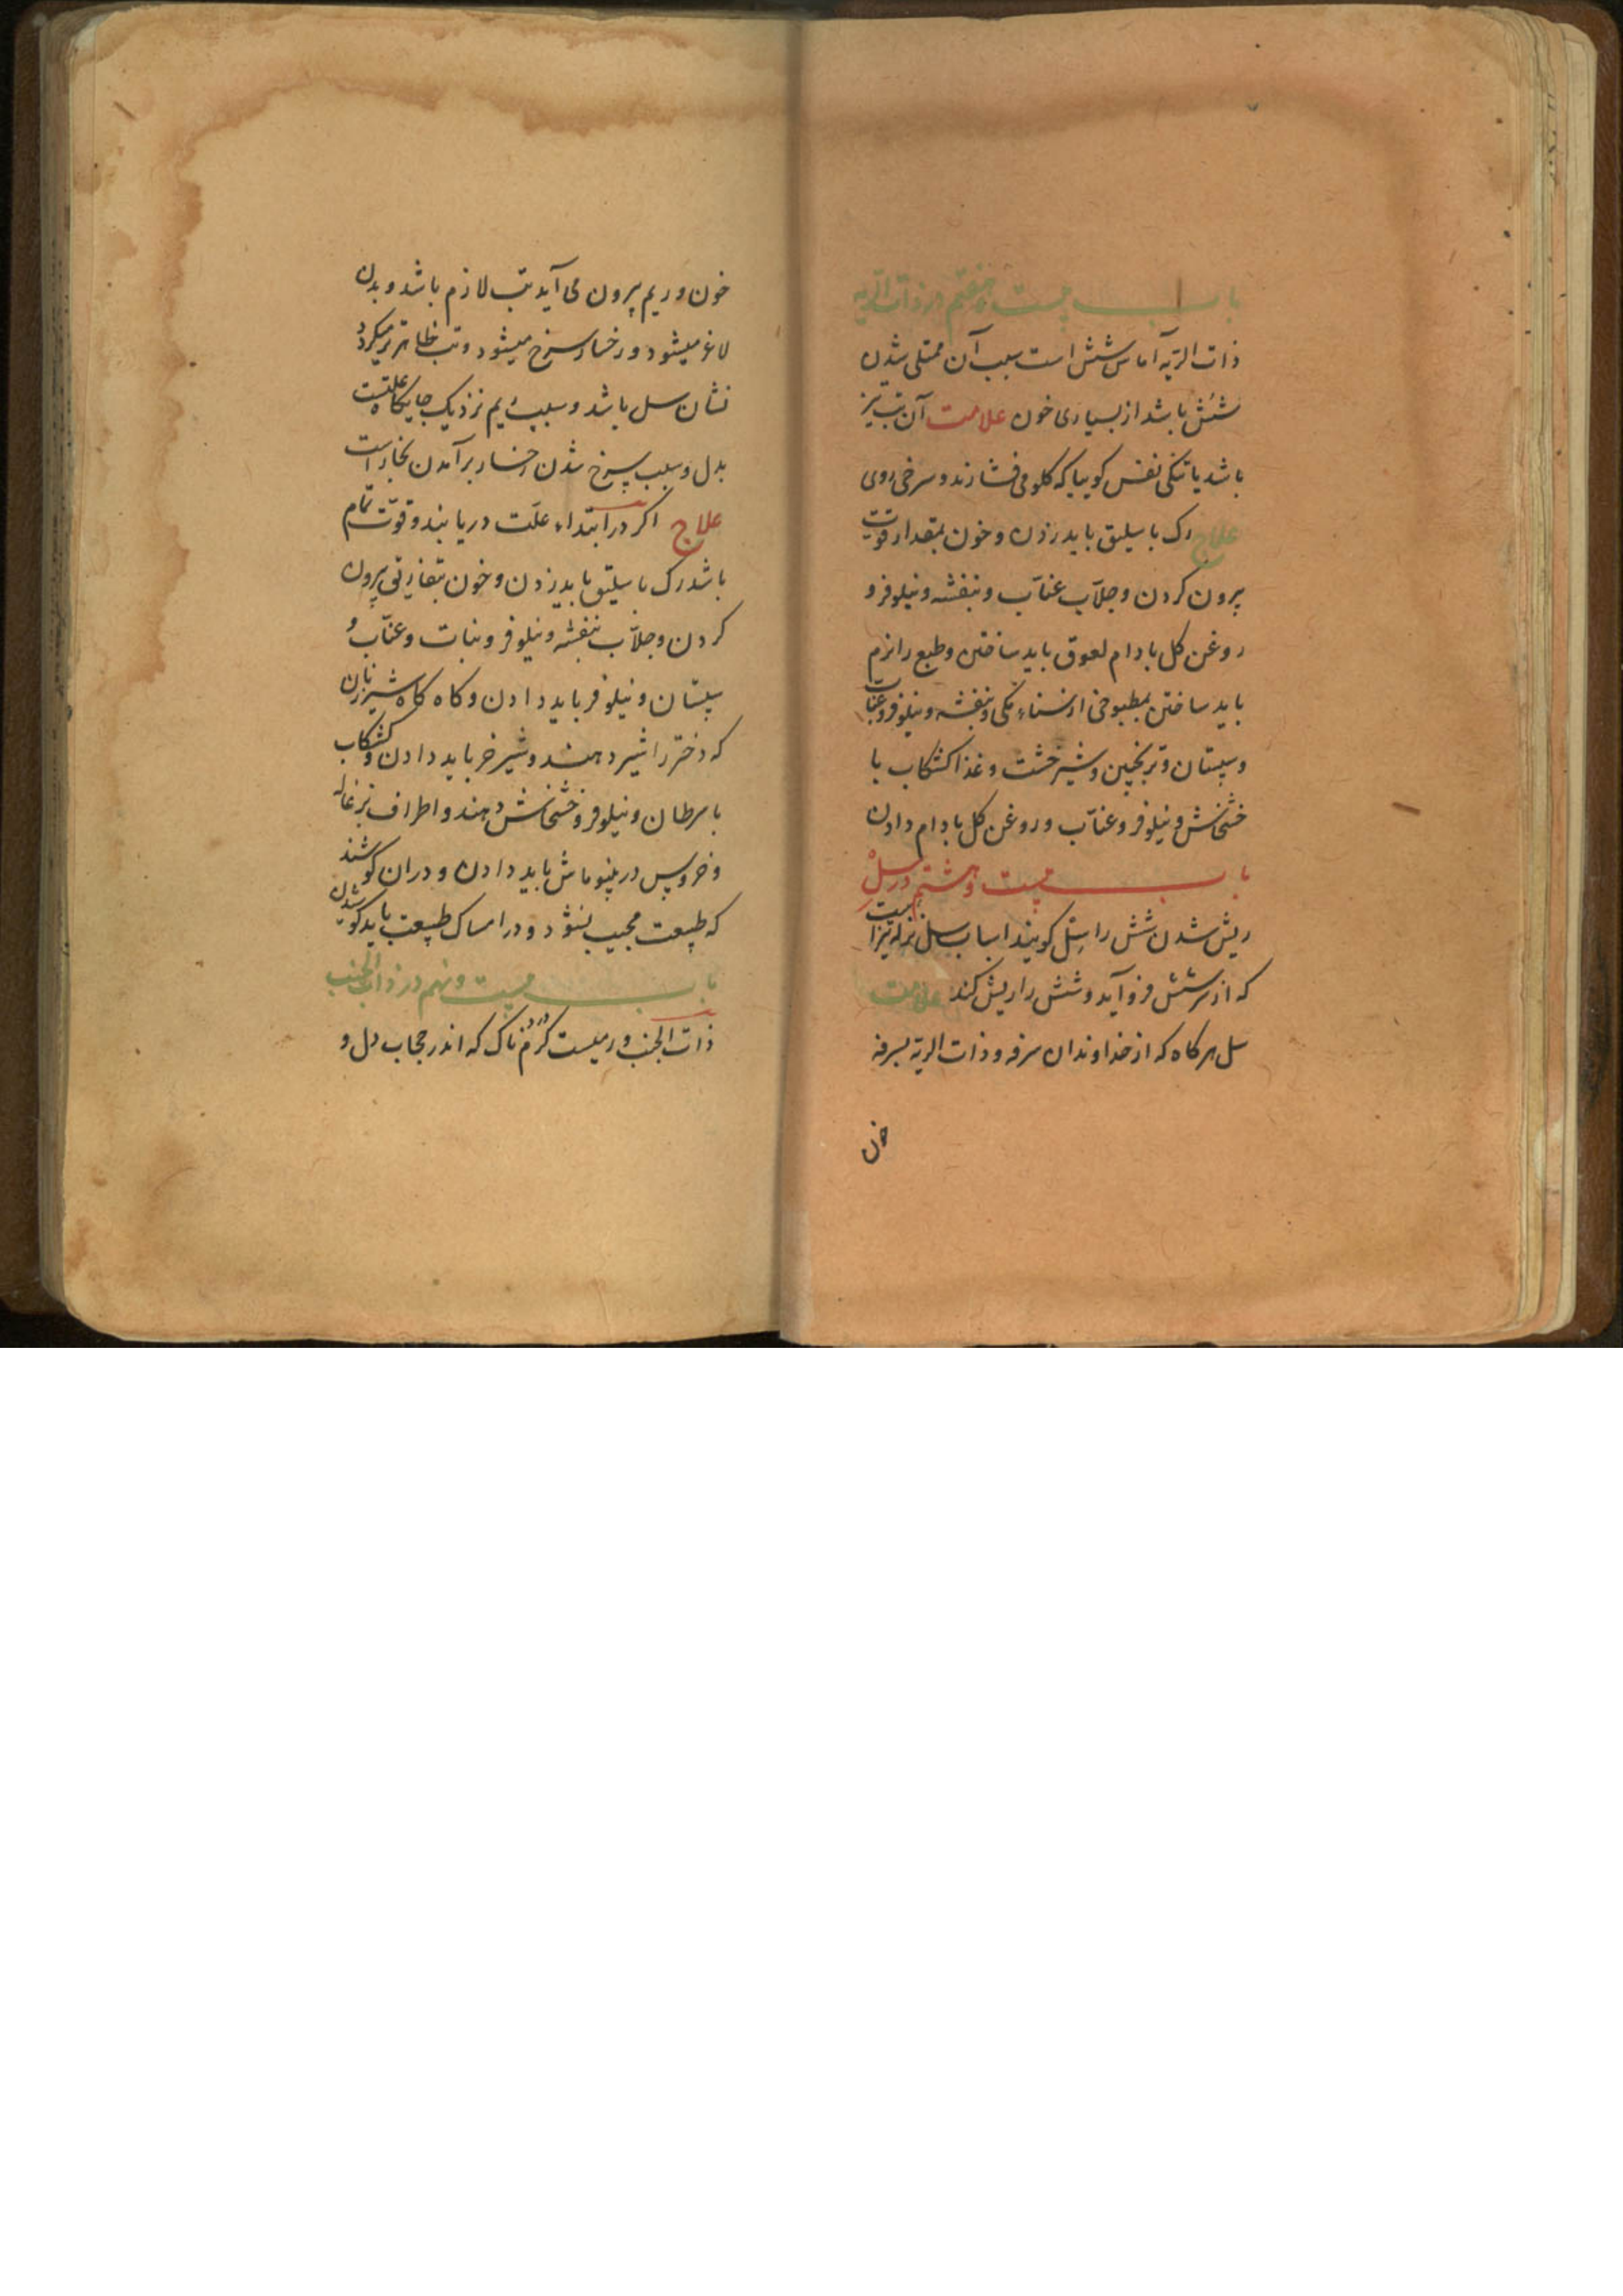 باب بیست و هفتم در ذات الریه
ذات الریه آماس شش است سبب آن ممتلی شدن
شش باشد از بسیاری خون علامت آن تب تیز
باشد یا تنکی نفس کوییا که کلو می فشارند و سرخی روی
علاج رک باسلیق باید زدن و خون بمقدار قوت
بیرون کردن و جلاّب عنّاب و بنفشه و نیلوفر و
روغن کل بادام لعوق باید ساختن و طبع را نرم
باید ساختن بمطبوخی از سناء مکی و بنفشه و نیلوفر و عناب
و سپستان و ترنجبین و شیرخشت و غذا کشکاب با
خشخاش و نیلوفر و عنّاب و روغن کل بادام دادن
باب بیست و هشتم در سل
ریش شدن شش را سل کویند اسباب سل نزله تیزاست
که از سر بشش فرو آید و شش را ریش کند علامت
سل هر کاه که از خداوندان سرفه و ذات الریه بسرفه
خون
خون و ریم بیرون می آید تب لازم باشد و بدن
لاغر میشود و رخسار سرخ میشود و تب ظاهرتر میکردد
نشان سل باشد و سبب نزدیک جایکاه علتست
بدل و سبب سرخ شدن رخسار برآمدن بخار است
علاج اکر در ابتداء علّت دریابند و قوّت تمام
باشد رک باسلیق باید زدن و خون بتفاریق بیرون
کردن و جلاّب بنفشه و نیلوفر و نبات و عنّاب و
سپستان و نیلوفر باید دادن و کاه کاه شیر زنان
که دختر را شیر دهند و شیر خر باید دادن و کشکاب
با سرطان و نیلوفر و خشخاش دهند و اطراف بزغاله
و خروس در پینو ماش باید دادن و در آن کوشند
که طبیعت مجیب نشود و در امساک طبیعت باید کوشیدن
باب بیست و نهم در ذات الجنب
ذات الجنب ورمیست کرم دردناک که اندر حجاب دل و